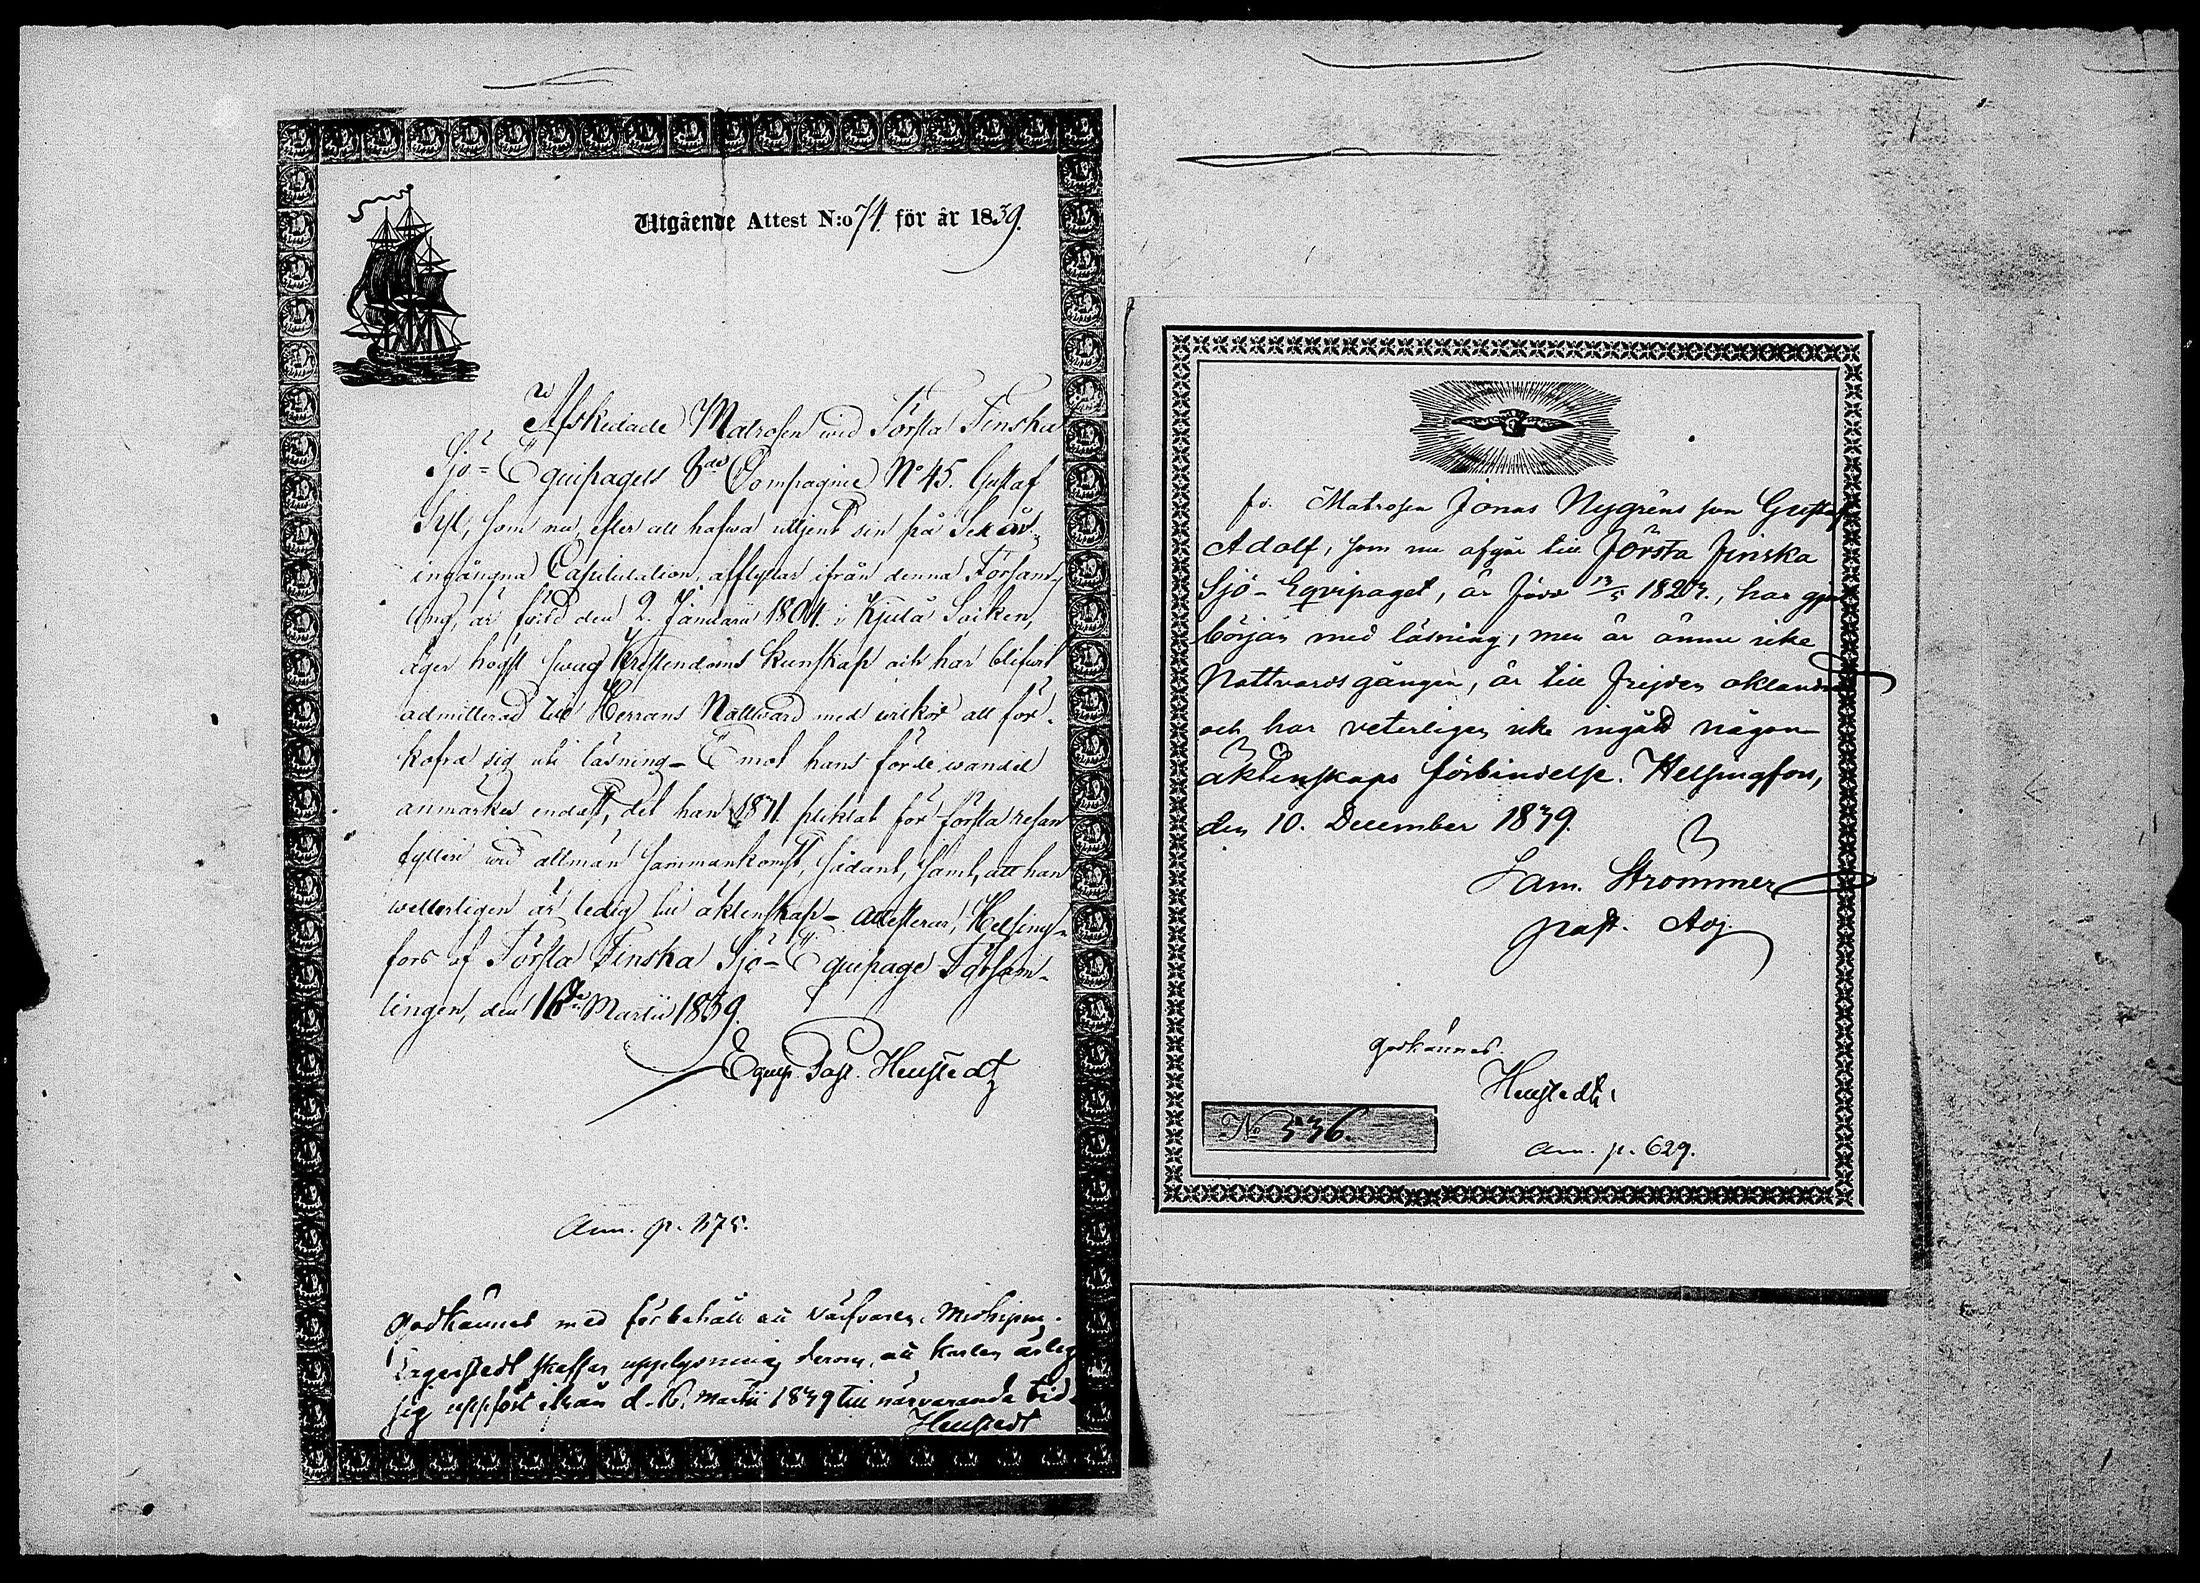 Utgående Attest N:o 74. för år 1839.
Afskedade Matrosen wid Första Finska
Sjö-Equipagets 8de Compagnie N:o 45. Gustaf
som nu, efter att hafwa uttjent sin på Sex år
ingångna Capitulation, afflyttar ifrån denna Försam-
ling, är född den 2. Januarii 1804. i Kjulå Socken,
äger högst swag Kristendoms kunskap och har blifwit
admitterad till Herrans Nattward med wilkor att för-
kofra sig uti läsning - Emot hans förde wandel
anmärkes endast, det han 1831. pliktat för första resan
fylleri wid allmän sammankomst, sådant, samt, att han
wetterligen är ledig till äktenskap - attesterar, Helsing-
fors af Första Finska Sjö-Equipage Försam-
lingen, den 16de Martii 1839.
Equip. Past. Heustedt
Ann. p. 375.
Godkännes med förbehåll att
skaffar upplysning derom, att karlen ärlig
sig uppfört ifrån d. 16. Martii 1839 till närvarande tid.
Heustedt
fr. Matrosen Jonas Nygréns son Gustaf
Adolf, som nu afgår till Första Finska
Sjö-Eqvipaget, är född 13/5 1823., har gjort
början med läsning, men är ännu icke
Nattvardsgången, är till frejden oklandrad
och har veterligen icke ingått någon
äktenskaps förbindelse. Helsingfors,
den 10. December 1839.
Sam. Strömmer
past. Adj.
Godkännes.
Heustedt
No 336.
Ann. p. 629.